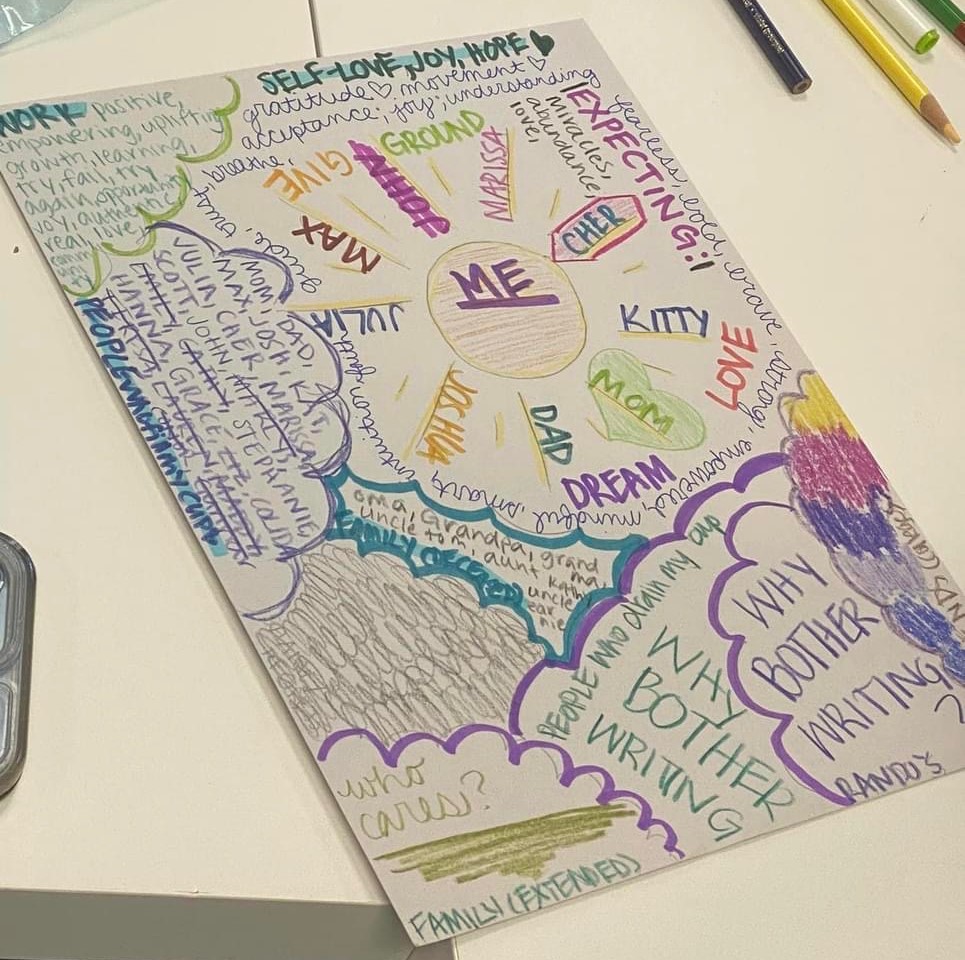 SELF-LOVE, JOY, HOPE
gratitude movement
acceptance, joy, understanding
WORK positive,
empowering, uplifting
growth, learning,
try, fail, try
again, opportunity
joy, authentic
real, love,
commu
uni
ty
guide, trust, breathe,
GIVE
JOHN
GROUND
MARISSA
love,
abundance,
Miracles,
EXPECTING:
fearless, bold, brave, strong, empowered, mindful, smart, intuition, faith
MAX
CHER
ME
JULIA
KITTY
LOVE
JOSHUA
DAD
MOM
DREAM
PEOPLE who fill my cup!
MOM, DAD, KAT,
MAX, JOSH, MARISSA
JULIA, CHER
SCOTT, JOHN
STEPHANIE,
HANNA, GRACE, LIZ, COLIDA
FAMILY
oma, Grandpa, grand
uncle tom, aunt ma,
Kathy
uncle
ear
nie
People who drain my cup
WHY
BOTHER
WRITING
WHY
BOTHER
WRITING
?
RANDO'S
who
cares?
FAMILY (EXTENDED)